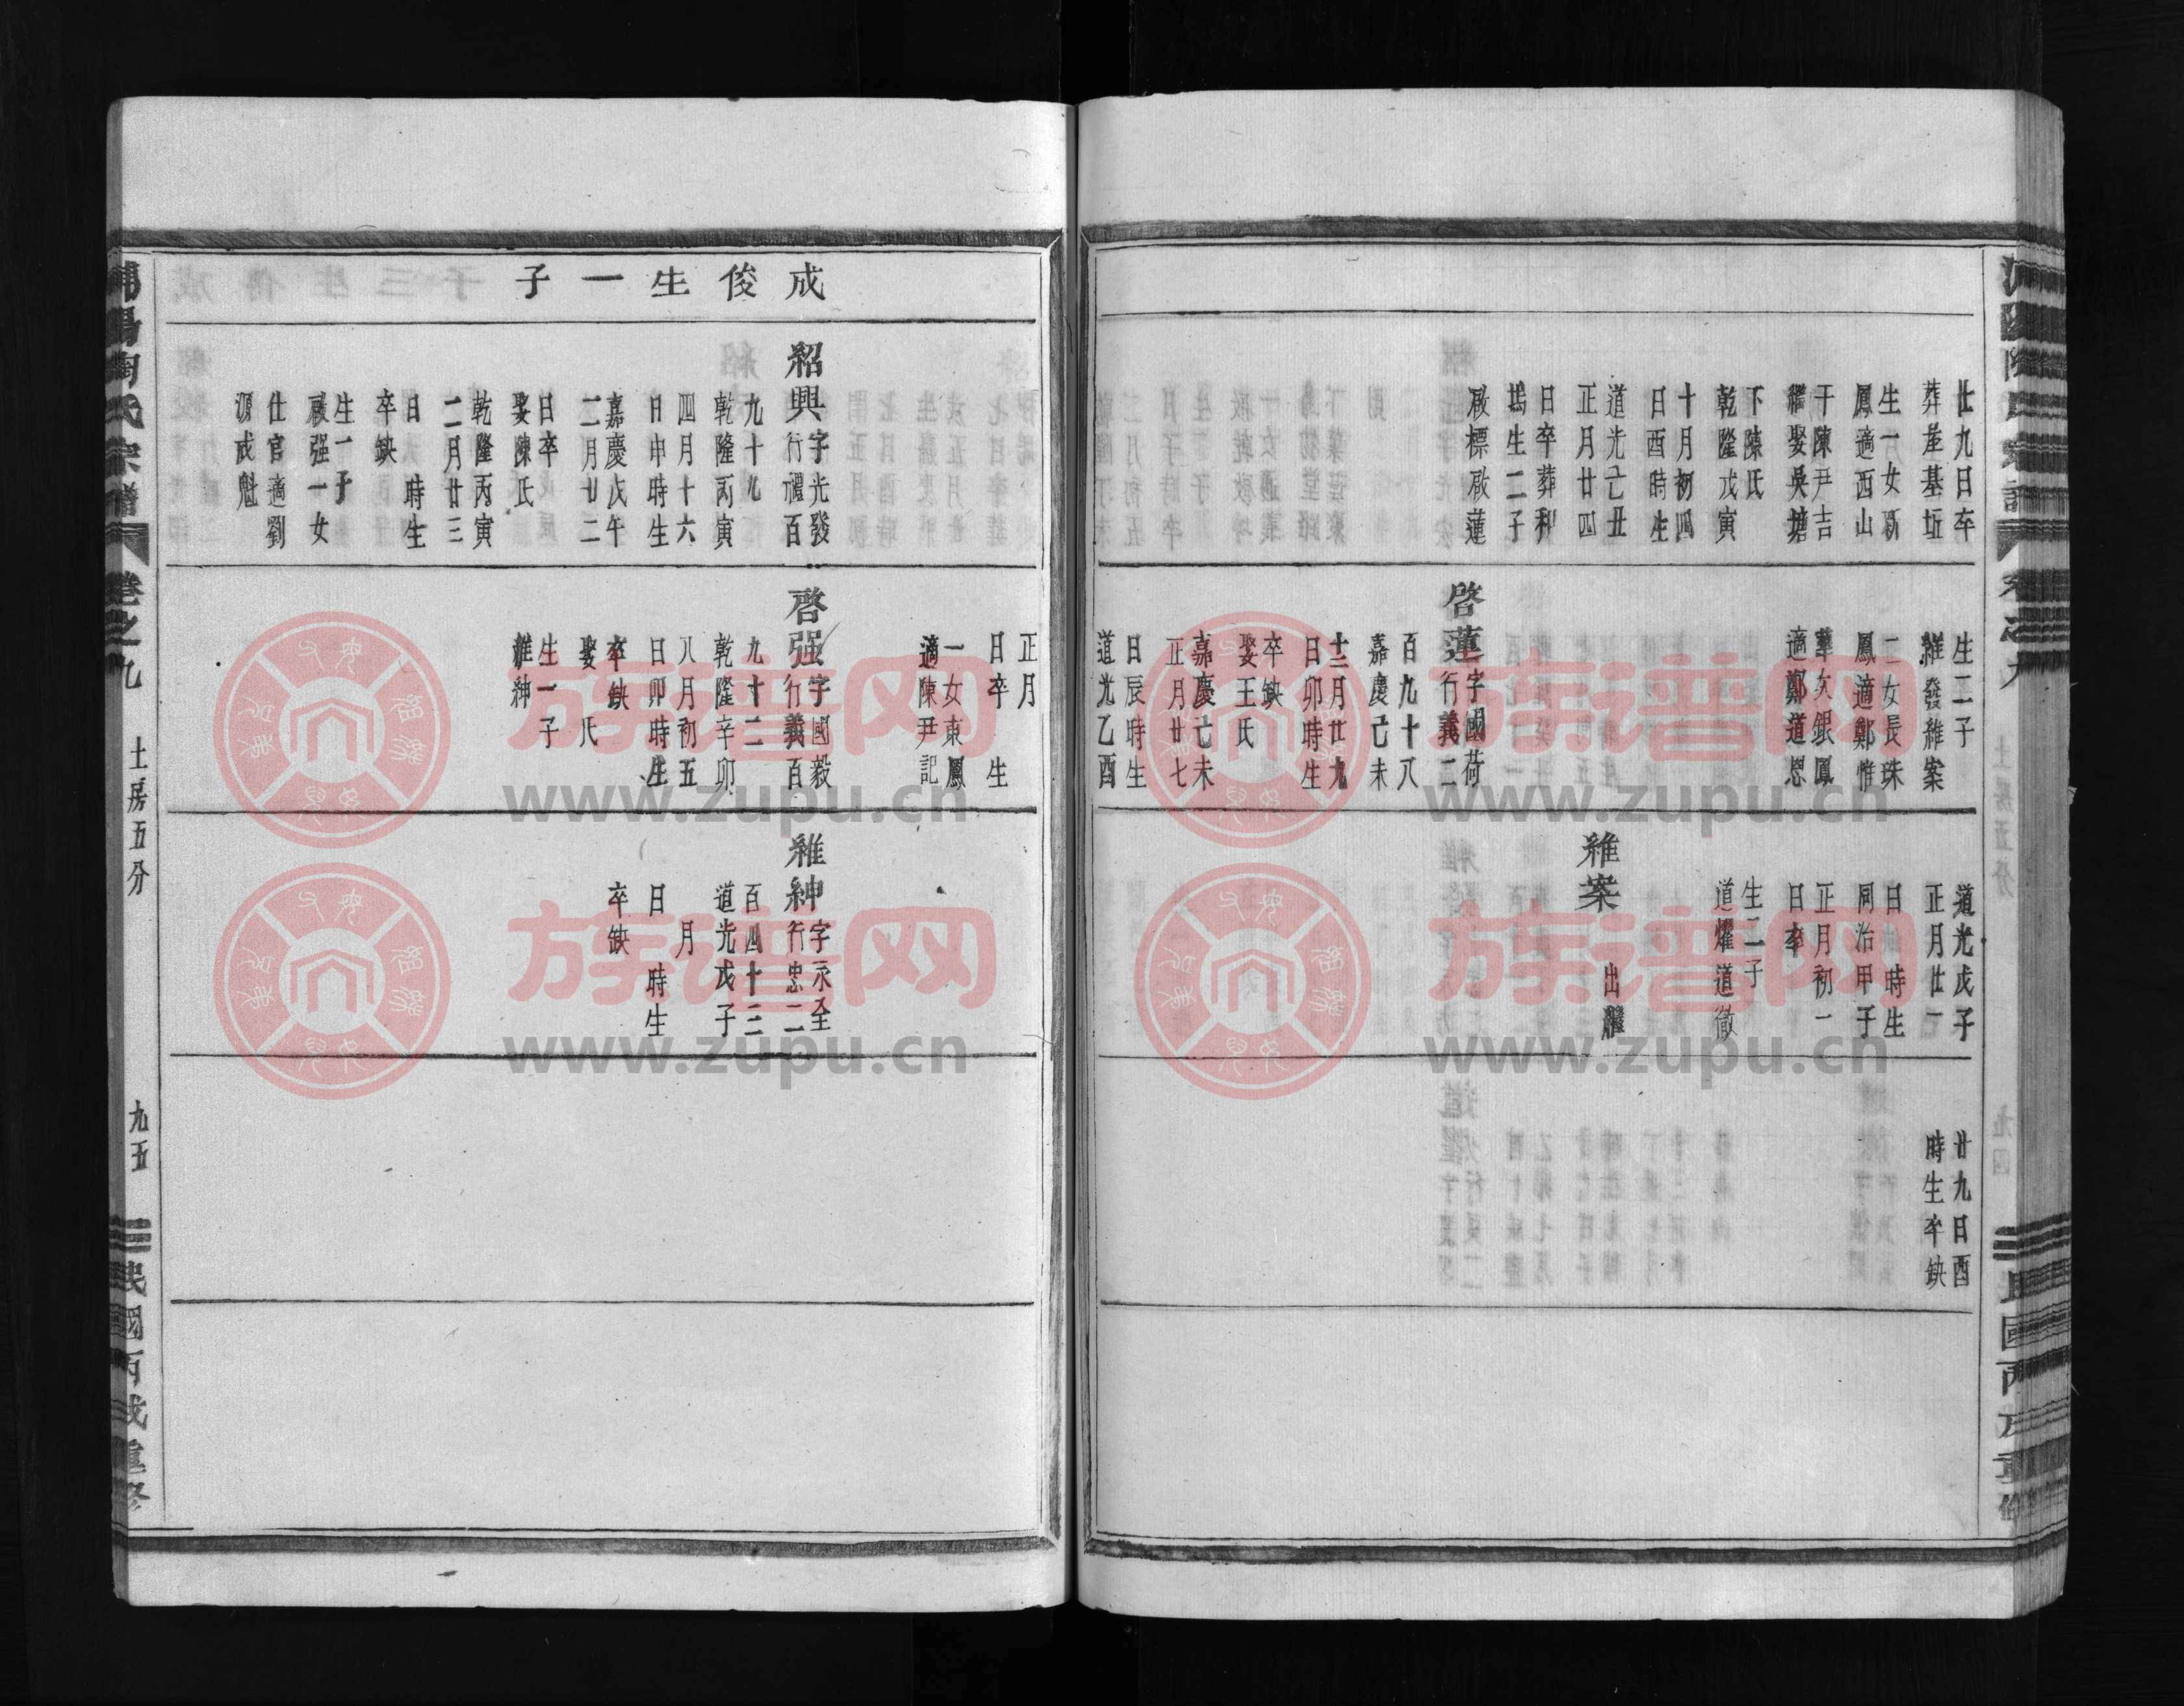 廿九日卒
葬崖基坵
生一女
鳳適西山
干陳尹吉
繼娶吳塘
下陳氏
乾隆戊寅
十月初四
日酉時生
道光己丑
正月廿四
日卒葬和
塢生二子
啟標啟蓮
生二子
維發維案
二女長珠
鳳適鄭惟
華次銀鳳
適鄭道恩
啓蓮字國荷
行義二
百九十八
嘉慶己未
十二月廿九
日卯時生
卒缺
娶王氏
嘉慶己未
正月廿七
日辰時生
道光乙酉
道光戊子
正月廿一
日 時生
同治甲子
正月初一
日卒
生二子
道燿道徵
維案
出繼
廿九日酉
時生卒缺
成俊生一子
紹興字光發
行禮百
九十九
乾隆丙寅
四月十六
日申時生
嘉慶戊午
二月廿二
日卒
娶陳氏
乾隆丙寅
二月廿三
日 時生
卒缺
生一子
啟强一女
仕官適劉
源成魁
正月
日卒 生
一女東鳳
適陳尹記
啓强字國毅
行義百
九十二
乾隆辛卯
八月初五
日卯時生
卒缺
娶 氏
生一子
維紳
維紳字示至
行忠二
百四十三
道光戊子
月
日 時生
卒缺
陶氏宗譜
卷之九
土房五分
九五
民國丙戌重修